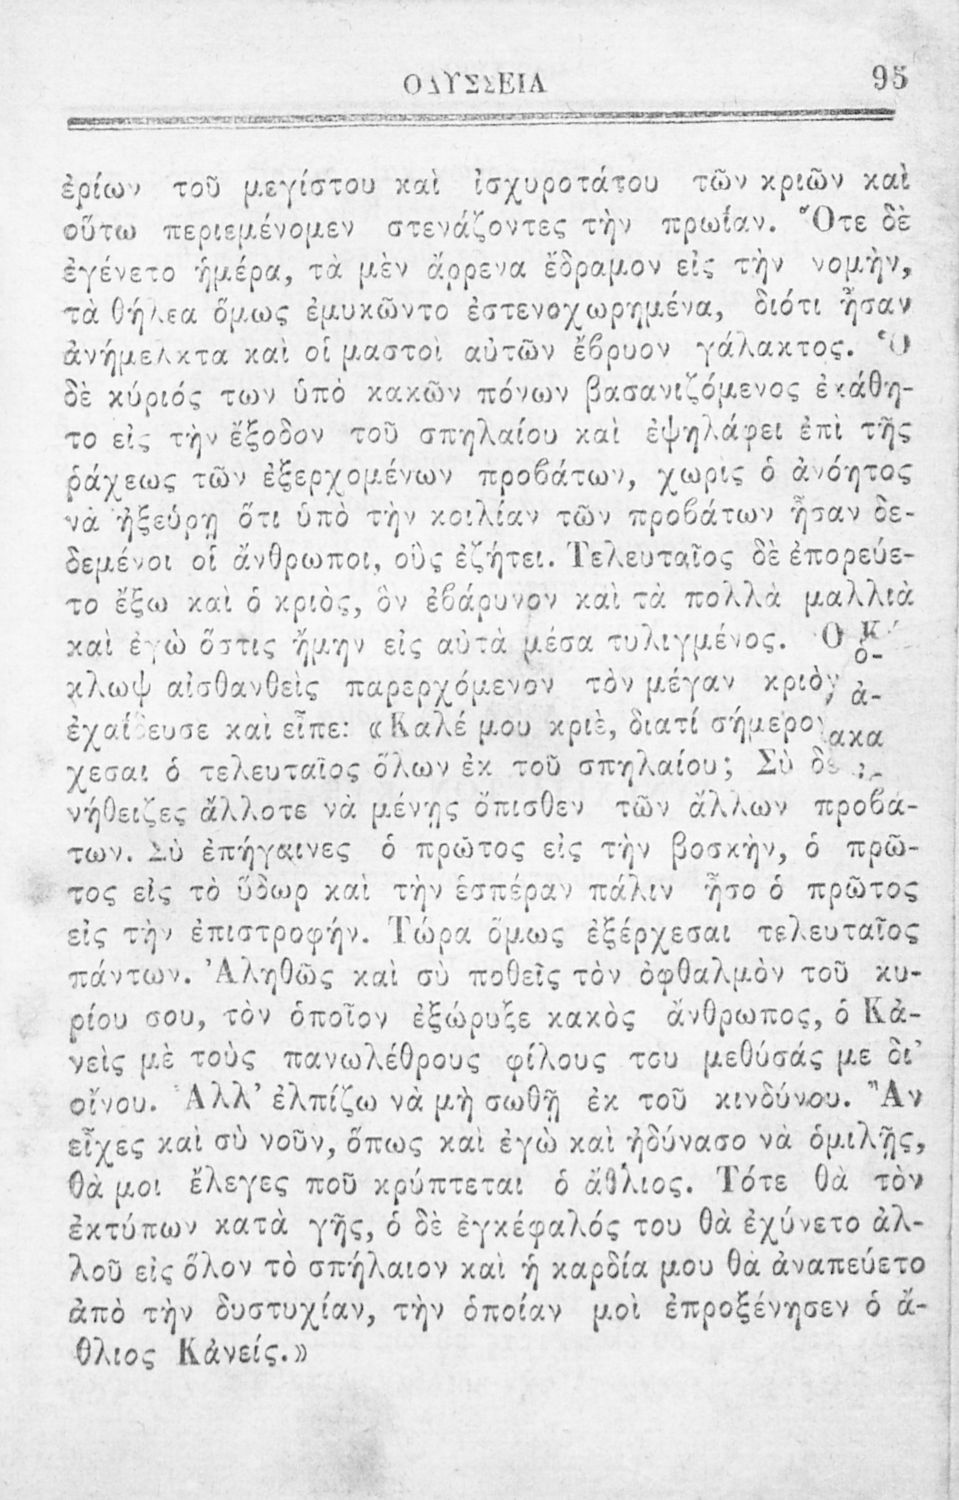 ΟΔΥΣΣΕΙΑ 95
ἐρίων τοῦ μεγίστου καὶ ἰσχυροτάτου τῶν κριῶν καὶ
οὕτω περιεμένομεν στενάζοντες τὴν πρωΐαν. Ὅτε δὲ
ἐγένετο ἡμέρα, τὰ μὲν ἄρρενα ἔδραμον εἰς τὴν νομὴν,
τὰ θήλεα ὅμως ἐμυκῶντο ἐστενοχωρημένα, διότι ἦσαν
ἀνήμελκτα καὶ οἱ μαστοὶ αὐτῶν ἔβρυον γάλακτος. Ὁ
δὲ κύριός των ὑπὸ κακῶν πόνων βασανιζόμενος ἐκάθη-
το εἰς τὴν ἔξοδον τοῦ σπηλαίου καὶ ἐψηλάφει ἐπὶ τῆς
ῥάχεως τῶν ἐξερχομένων προβάτων, χωρὶς ὁ ἀνόητος
νὰ ἠξεύρῃ ὅτι ὑπὸ τὴν κοιλίαν τῶν προβάτων ἦσαν δε-
δεμένοι οἱ ἄνθρωποι, οὓς ἐζήτει. Τελευταῖος δὲ ἐπορεύε-
το ἔξω καὶ ὁ κριὸς, ὃν ἐβάρυνον καὶ τὰ πολλὰ μαλλιὰ
καὶ ἐγὼ ὅστις ἤμην εἰς αὐτὰ μέσα τυλιγμένος. Ὁ Κύ-
κλωψ αἰσθανθεὶς παρερχόμενον τὸν μέγαν κριὸν
ἐχαΐδευσε καὶ εἶπε: «Καλέ μου κριὲ, διατί σήμερον
χεσαι ὁ τελευταῖος ὅλων ἐκ τοῦ σπηλαίου; Σὺ δὲ
νήθειζες ἄλλοτε νὰ μένῃς ὄπισθεν τῶν ἄλλων προβά-
των. Σὺ ἐπήγαινες ὁ πρῶτος εἰς τὴν βοσκὴν, ὁ πρῶ-
τος εἰς τὸ ὕδωρ καὶ τὴν ἑσπέραν πάλιν ἦσο ὁ πρῶτος
εἰς τὴν ἐπιστροφήν. Τώρα ὅμως ἐξέρχεσαι τελευταῖος
πάντων. Ἀληθῶς καὶ σὺ ποθεῖς τὸν ὀφθαλμὸν τοῦ κυ-
ρίου σου, τὸν ὁποῖον ἐξώρυξε κακὸς ἄνθρωπος, ὁ Κἀ-
νεὶς μὲ τοὺς πανωλέθρους φίλους του μεθύσάς με δι’
οἴνου. Ἀλλ’ ἐλπίζω νὰ μὴ σωθῇ ἐκ τοῦ κινδύνου. Ἂν
εἶχες καὶ σὺ νοῦν, ὅπως καὶ ἐγὼ καὶ ἠδύνασο νὰ ὁμιλῇς,
θὰ μοι ἔλεγες ποῦ κρύπτεται ὁ ἄθλιος. Τότε θὰ τὸν
ἐκτύπων κατὰ γῆς, ὁ δὲ ἐγκέφαλός του θὰ ἐχύνετο ἀλ-
λοῦ εἰς ὅλον τὸ σπήλαιον καὶ ἡ καρδία μου θὰ ἀναπεύετο
ἀπὸ τὴν δυστυχίαν, τὴν ὁποίαν μοὶ ἐπροξένησεν ὁ ἄ-
θλιος Κἀνείς.»